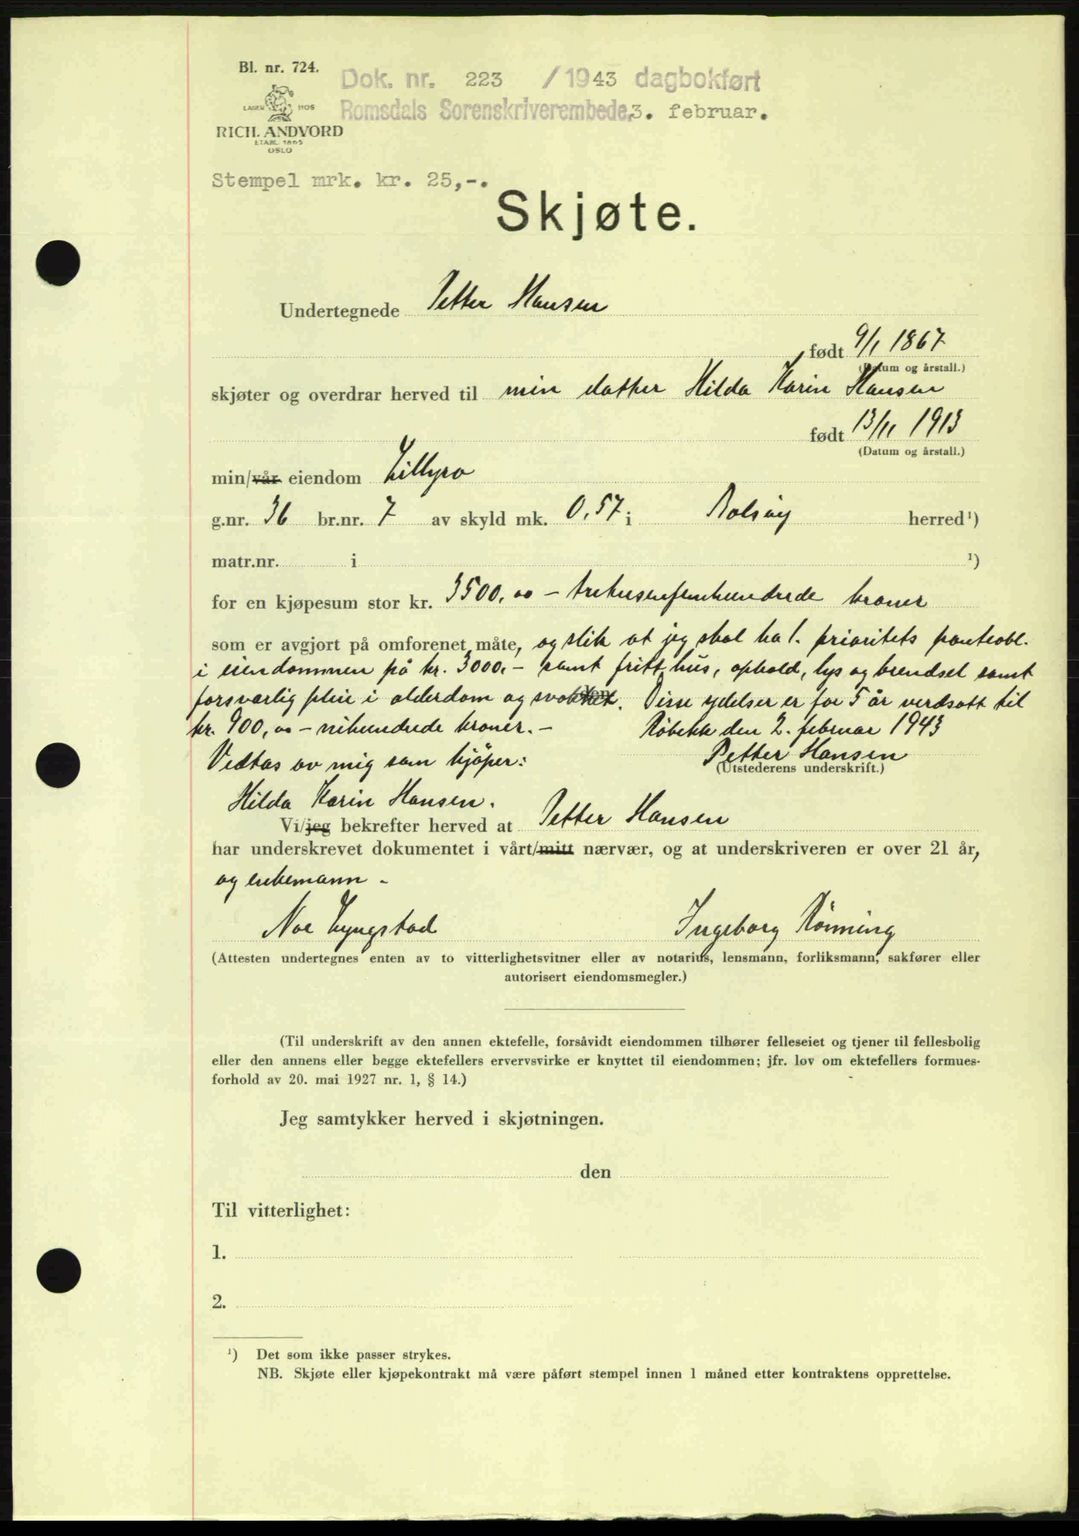 Bl. nr. 724.
Dok. nr. 223 /1943 dagbokført
Romsdals Sorenskriverembede, 3. februar.
LAGER MOS
RICH. ANDVORD
ETABL. 1865
OSLO
Stempel mrk. kr. 25,-.
Skjøte.
Undertegnede Petter Hansen
født 9/1 1867
(Datum og årstall.)
skjøter og overdrar herved til min datter Hilda Karin Hansen
født 13/11 1913
(Datum og årstall.)
min/vår eiendom Lillyro
g.nr. 36 br.nr. 7 av skyld mk. 0,57 i Bolsøy herred¹)
matr.nr. i ¹)
for en kjøpesum stor kr. 3500,00 - tretusenfemhundrede kroner
som er avgjort på omforenet måte, og slik at jeg skal ha 1. prioritets panteobl.
i eiendommen på kr. 3000,- samt fritt hus, ophold, lys og brendsel samt
forsvarlig pleie i alderdom og svakhet. Disse ydelser er for 5 år verdsatt til
kr. 900,00 - nihundrede kroner. - Røbekk den 2. februar 1943
Vedtas av mig som kjøper: Petter Hansen
(Utstederens underskrift.)
Hilda Karin Hansen.
Vi/jeg bekrefter herved at Petter Hansen
har underskrevet dokumentet i vårt/mitt nærvær, og at underskriveren er over 21 år,
og enkemann -
Noe Lyngstad Ingeborg Rønning
(Attesten undertegnes enten av to vitterlighetsvitner eller av notarius, lensmann, forliksmann, sakfører eller
autorisert eiendomsmegler.)
(Til underskrift av den annen ektefelle, forsåvidt eiendommen tilhører felleseiet og tjener til fellesbolig
eller den annens eller begge ektefellers ervervsvirke er knyttet til eiendommen; jfr. lov om ektefellers formues-
forhold av 20. mai 1927 nr. 1, § 14.)
Jeg samtykker herved i skjøtningen.
den
Til vitterlighet:
1.
2.
¹) Det som ikke passer strykes.
NB. Skjøte eller kjøpekontrakt må være påført stempel innen 1 måned etter kontraktens opprettelse.